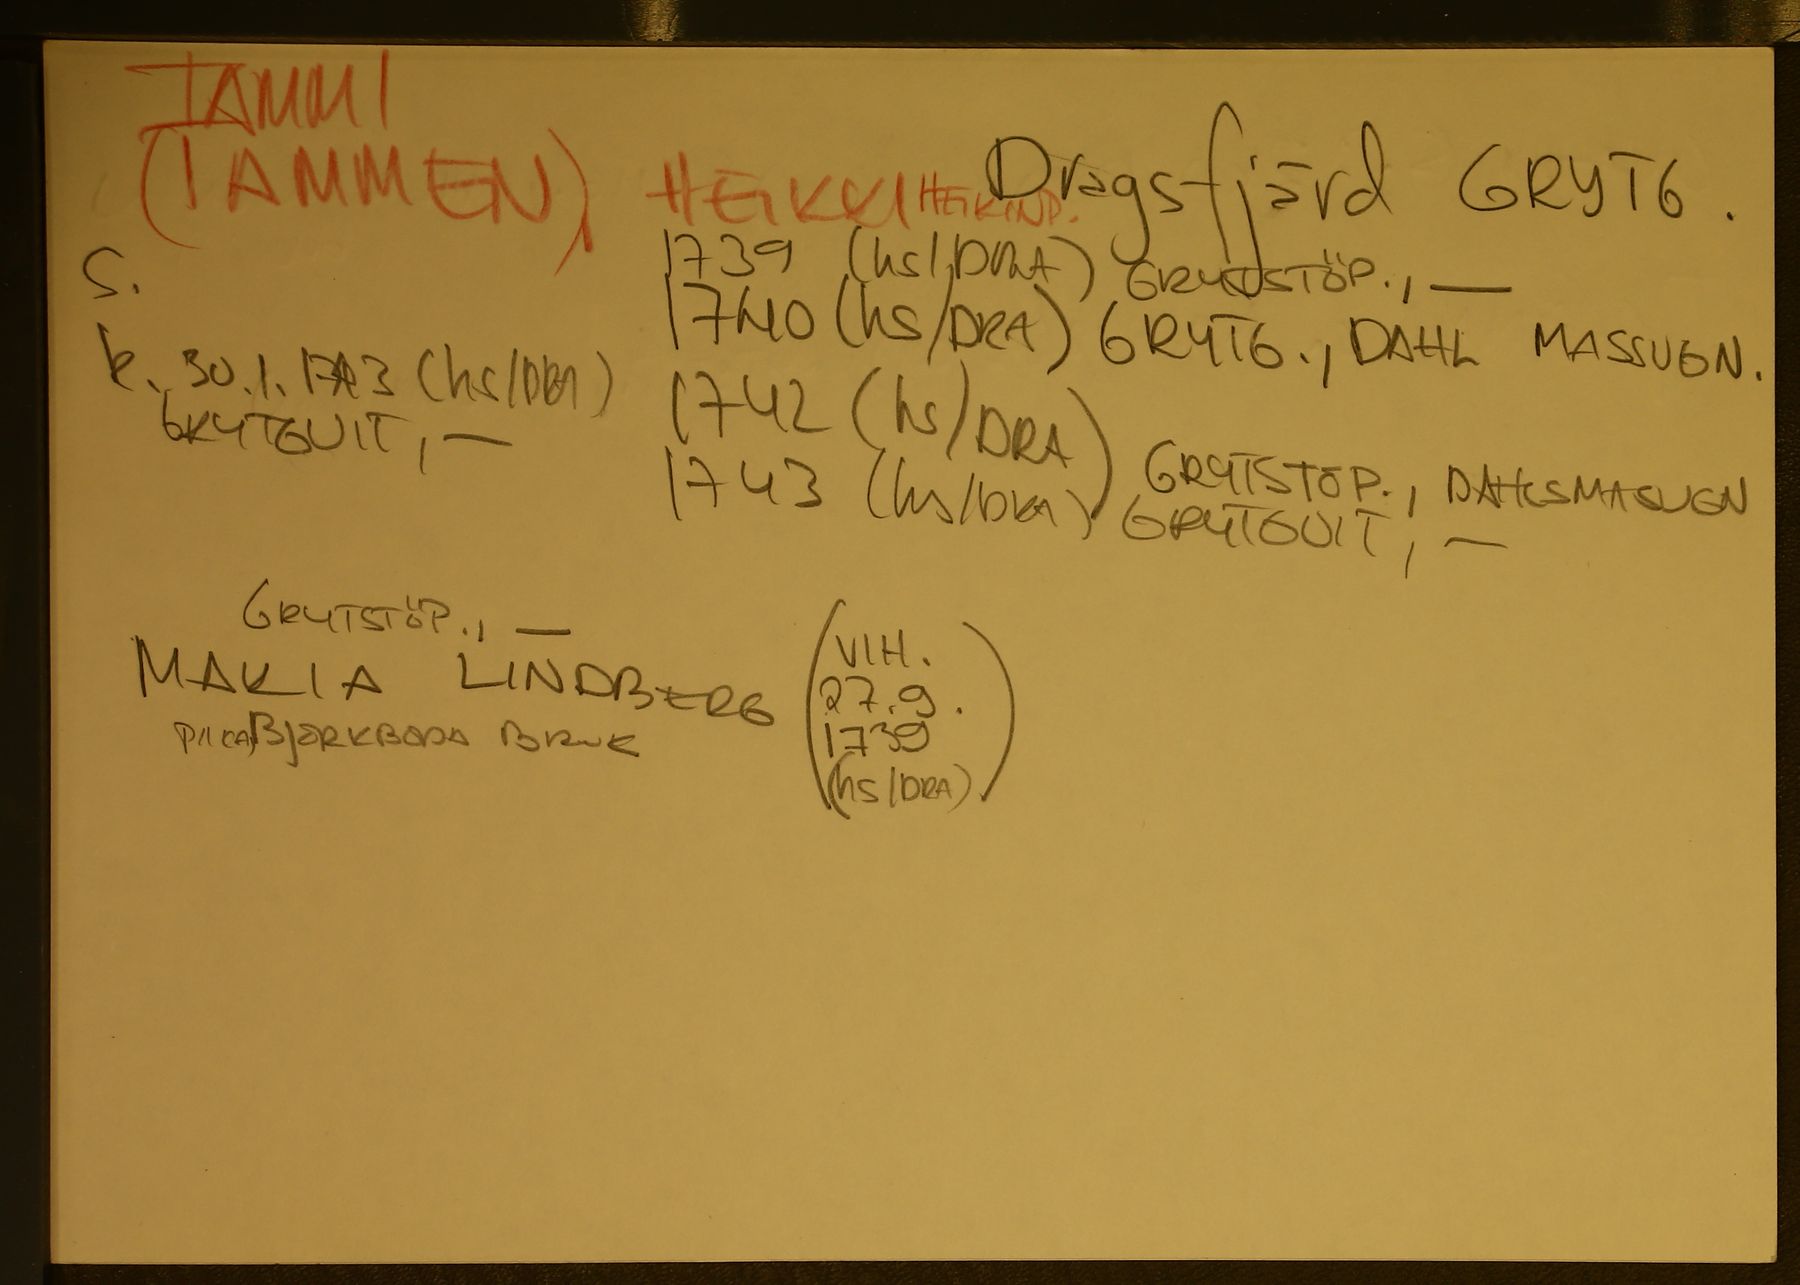 TAMMI
(TAMMEN), HEIKKI HEIKINP. Dragsfjärd GRYTG.
S.
1739 (hs/DRA) GRYTSTÖP., —
1740 (hs/DRA) GRYTG., DAHL MASSUGN.
k. 30.1.1743 (hs/DRA)
GRYTGUIT, —
1742 (hs/DRA) GRYTSTÖP., DAHLSMASUGN
1743 (hs/DRA) GRYTGUIT, —
GRYTSTÖP., —
MARIA LINDBERG (VIH.
27.9.
1739
(hs/DRA))
PIKA BJÖRKBODA BRUK